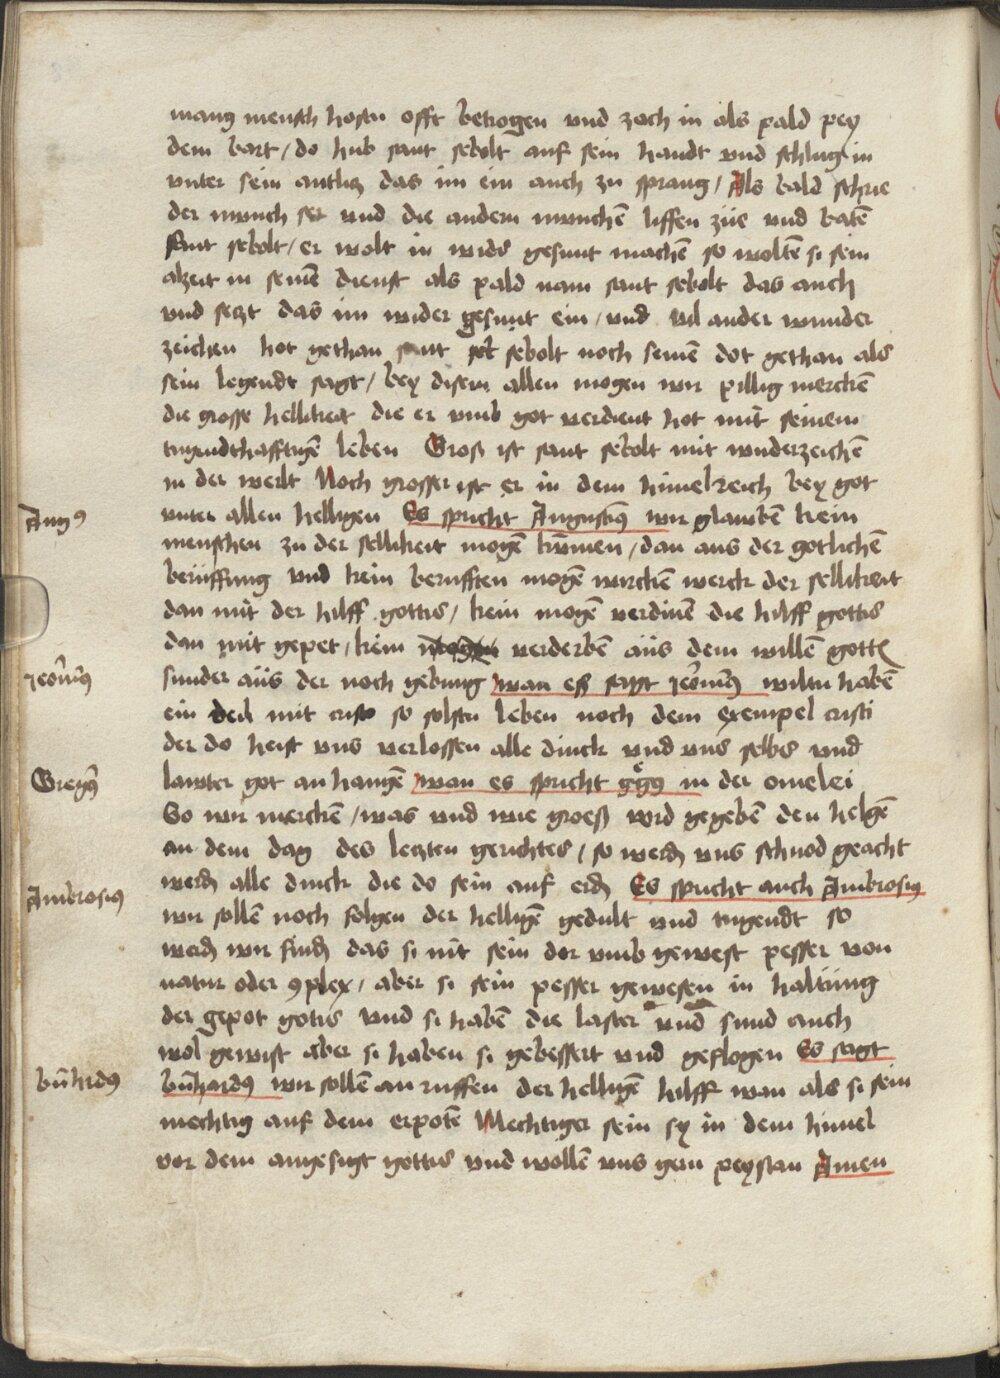 manig mensch hostu offt betrogen und zoch in als pald pey
dem bart / do hub sant sebolt auf sein handt und schlug in
unter sein antlitz das im ein auch zu sprang / Als bald schrie
der munch ser und die andern munchē liffen züe und batē
sant sebolt / er wolt in wids gesunt machē so woltē si sein
alzeit in seinē dienst als pald nam sant sebolt das auch
und setzt das im wider gesunt ein / und vil ander wunder
zeichen hot gethan sant sebolt noch seinē dot gethan als
sein legendt sagt / bey disem allen mogen wir pillig merckē
die grosse hellikeit die er umb got verdient hot mit seinem
tugendthafftigē leben Groß ist sant sebolt mit wnderzeichē
in der werlt Noch grosser ist er in dem himelreich bey got
Augꝯ
unter allen helligen Es spricht Augustinꝯ wir glawbē kein
menschen zu der sellikeit mogē kumen / dan aus der gotlichē
berüffung und kein berufften mogē wirckē werck der sellikeit
dan mit der hilff gottis / kein mogē verdinē die hilff gottis
dan mit gepet / kein verderbē aüs dem willē gottꝭ
Jeōnimꝯ
sunder aüs der noch gebung wan eß sagt Jeōnimꝯ wiltu habē
ein deil mit cristo so solstu leben noch dem exempel cristi
der do heist uns verlossen alle dinck und uns selbs und
Gregꝯ
lawter got an hangē wan es spricht ggꝯ in der omelei
So wir merckē / was und wie groeß wird gegebē den helgē
an dem dag des letzten gerichtes / so werdn uns schnod geacht
Ambrosius
werdn alle dinck die do sein auf erdn Es spricht auch Ambrosius
wir sollē noch folgen der helligē gedult und tugendt so
werdn wir findn das si nit sein dor umb gewest pesser von
natur oder ꝯplex / aber si sein pesser gewesen in haltüng
der gepot gotis und si habē die laster und sund auch
wol gewist aber si haben si gebessert und geflogen Es sagt
bn̄hrdꝯ
bn̄hardꝯ wir sollē an ruffen der helligē hilff wan als si sein
mechtig auf dem erpotē Mechtiger sein sy in dem himel
vor dem angesigt gottis und wollē uns gern peystan Amen